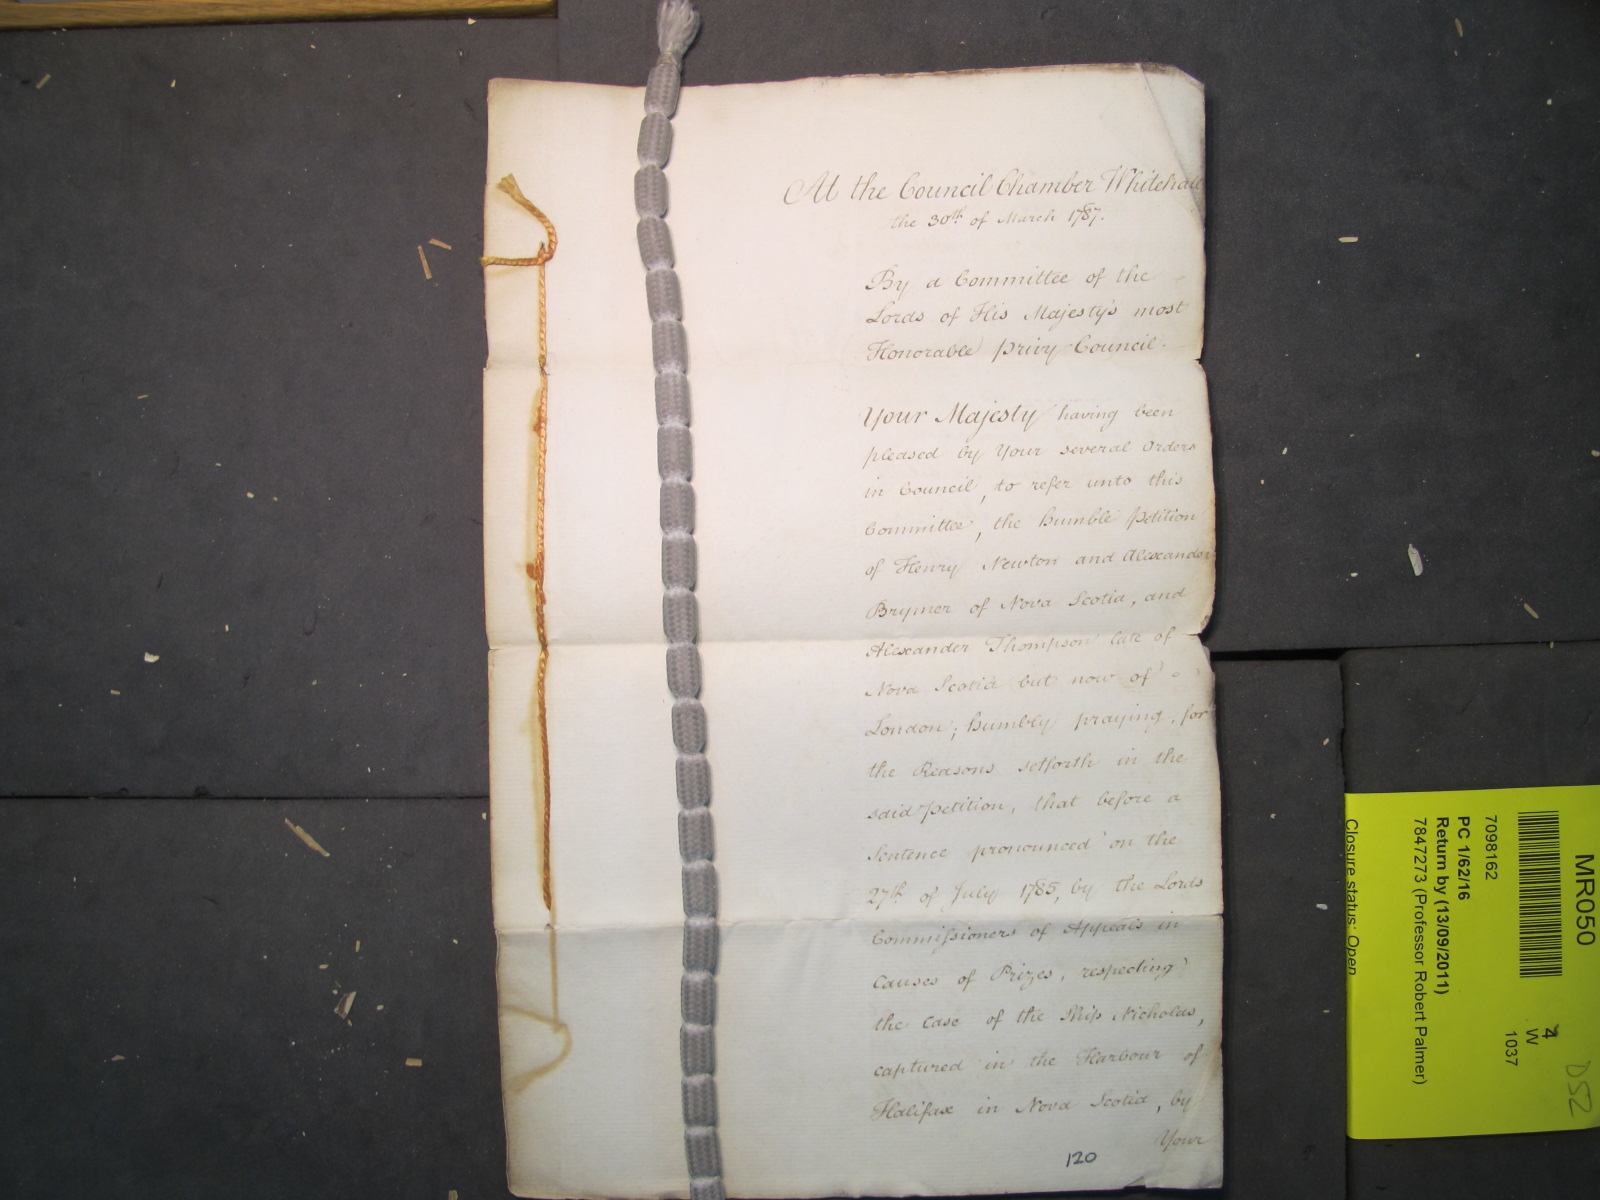 At the Council Chamber Whitehall
the 30th of March 1787.
By a Committee of the
Lords of His Majesty's most
Honorable privy Council.
Your Majesty having been
pleased by Your several Orders
in Council, to refer unto this
Committee, the humble Petition
of Henry Newton and Alexander
Brymer of Nova Scotia, and
Alexander Thompson late of
Nova Scotia but now of
London; humbly praying, for
the Reasons setforth in the
said Petition, that before a
Sentence pronounced on the
27th of July 1785, by the Lords
Commissioners of Appeals in
Causes of Prizes, respecting
the Case of the Ship Nicholas,
captured in the Harbour of
Halifax in Nova Scotia, by
Your
120
MR050
7098162
PC 1/62/16
Return by (13/09/2011)
7847273 (Professor Robert Palmer)
Closure status: Open
4
W
1037
D52